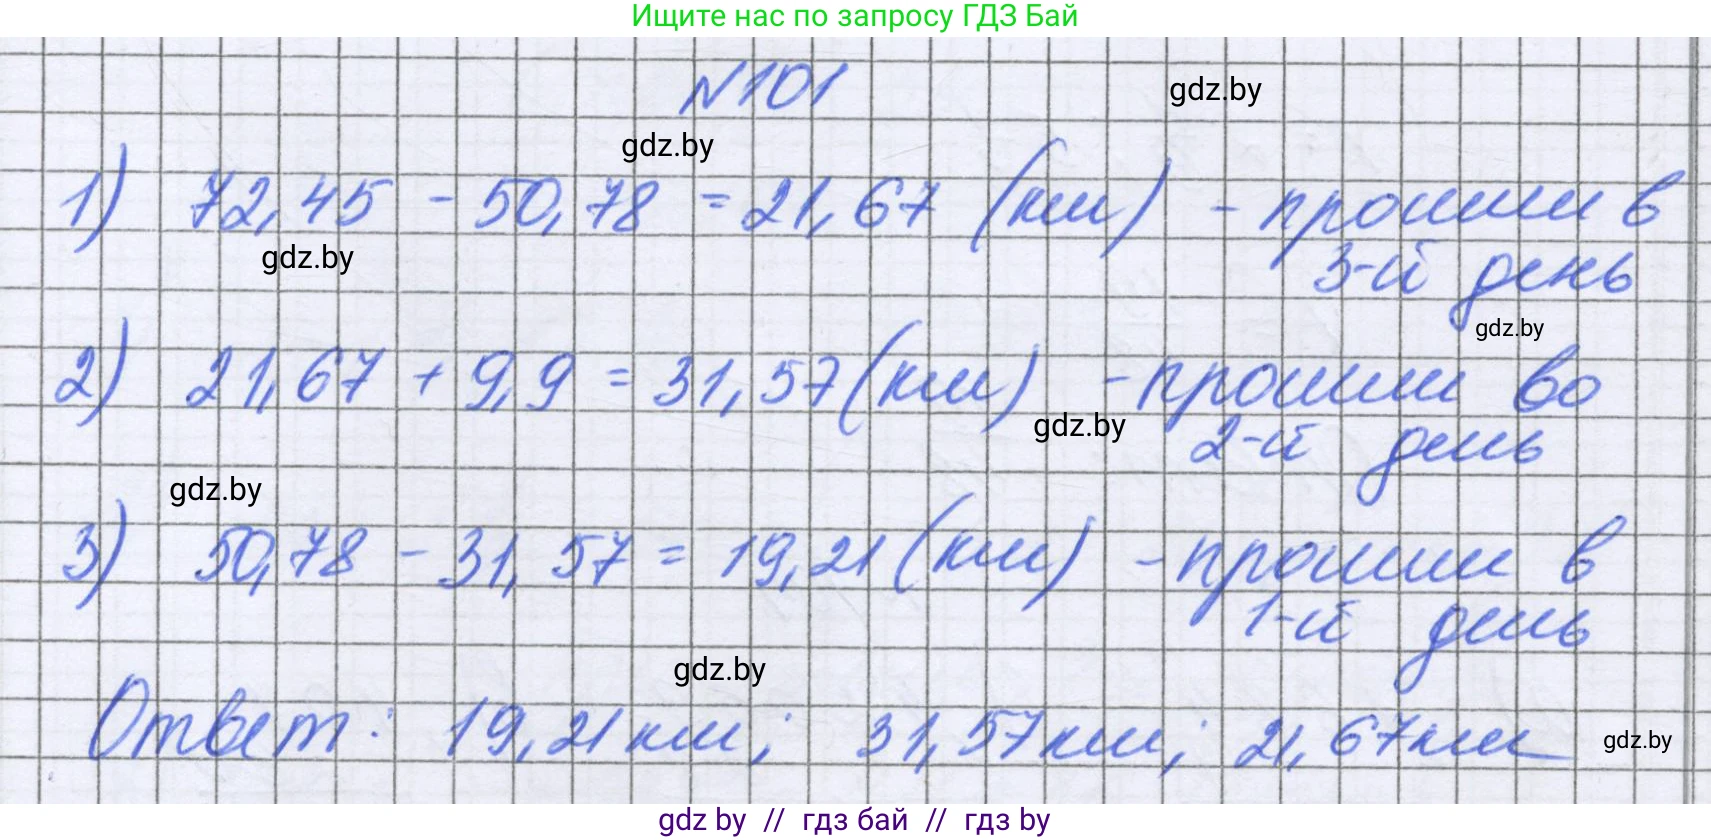 Ищите нас по запросу ГДЗ Бай
№101
gdz.by
gdz.by
1) 72,45 - 50,78 = 21,67 (км) - прошли в
3-й день
gdz.by
gdz.by
2) 21,67 + 9,9 = 31,57 (км) - прошли во
2-й день
gdz.by
gdz.by
3) 50,78 - 31,57 = 19,21 (км) - прошли в
1-й день
gdz.by
Ответ: 19,21 км; 31,57 км; 21,67 км
gdz.by
gdz by // гдз бай // гдз by